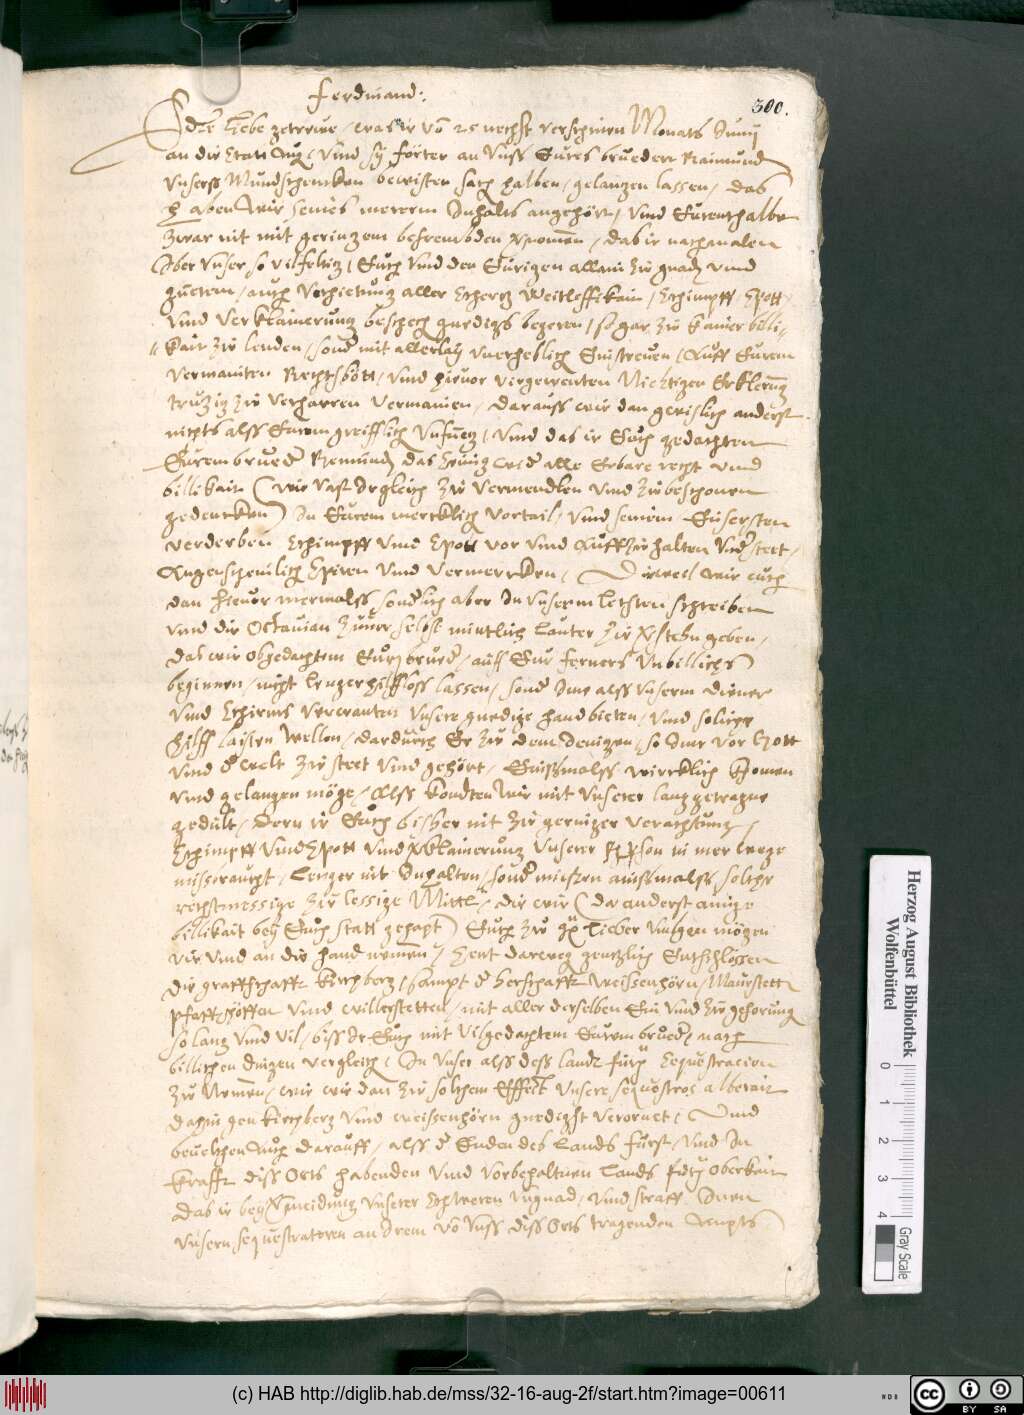 Ferdinand:
300.
Edle Liebe getrewe, was ir von 25 nechst verschinen Monats Junij
an die Statt Aug. vnd sy förter an vnss Eures brueder Raimund
vnsers Mundschencken bewisten sach halben, gelangen lassen, das
haben Wir seines merern Inhalts angehört, vnd Eurenthalbn
zwar nit mit geringem befrembden vernomen, das ir nachmalen
Vber vnser so vilfeltig, Euch vnd den Eurigen allain zu gnad vnnd
guetem, auch verhietung aller Schertz Weitleffikait, Schimpff, Spott,
vnd verklainerung beschech gnedigs begeren, so gar zu kainer billi-
kait zu lenden, sond mit allerlay vnerheblich Einstreuen, Auff Eurem
vermainten Rechtsbott, vnd hieuor virgewenten Nichtigen Erklerung
trutzig zu verharren vermainen, darauss wir dan gewislich anderst
nichts alss Eurem greifflich vnfueg, vnd das ir Euch gedachten
Eurem brueder Remund, das seinig wider alle Erbare recht vnnd
billikait (wie vast ir gleich zu vermendlen vnd zubeschonen
gedencken) zu Eurem mercklich vortail, vnd seinem Eusersten
verderben Schimpff vnd Spott vor vnd Auffzuhalten vnderstect,
Augenscheinlich Spiren vnd vermercken, Dieweil wir euch
dan hieuor mermalss sonderlich aber In vnserm letsten schreiben
vnd dir Octauian zuuor selbst mintlich lauter zu verstehn geben,
das wir obgedachtem Eurn brueder, auff Eur ferners vnbillichs
beginnen, nicht lenger hilffloss lassen, sond Ime alss vnserm diener
vnd Schirms verwanten vnsere gnedige handbieten, vnd solche
hilff laisten Wellen, dardurch Er zu dem Jenigen, so Ime vor Gott
vnd der welt zu steet vnd gehört, Einssmalss wircklich komen
vnd gelangen möge, Alss kondten Wir mit vnserer langgetragne
gedult, dern ir Euch bisher nit zu geringer verachtung,
Schimpff vnd Spott vnd verklainerung vnserer Person in mer wege
missraucht, lenger nit Inhalten, sond miessen ainssmalss solche
rechtmessige zulessige Mittl, die wir (da anderst ainige
billikait bey Euch statt gehapt) Euch zu lieber mögen
vir vnd an die hand nemen, Seint derweg gentzlich Entschlossen
die graffschafft Kirchberg, sampt der herschafft Weissenhörn, Maurstett
Pfaffenhoffen vnd Willerstetten, mit aller derselben Ein vnd zugehorung
so lang vnd vil, biss Ir Euch mit vilgedachtem Eurem brueder, nach
billichen dingen vergleich, In vnser alss dess landtfürst Sequestracion
zu Nemen, wie wir dan zu solchem Effect vnsere sequestros alberait
dahin gen Kirchberg vnd Weissenhörn gnedigst verornet, Vnnd
beuelchen Auch darauff, alss der Enden des Lands fürst, vnd In
krafft diss Orts habenden vnd vorbehaltnen Lands frt Oberkait
das ir bey vermeidung vnserer Schweren vngnad, vnd straff Iren
vnsern sequestratoren an Irem von vnss diss Orts tragenden Ampts
Herzog August Bibliothek
Wolfenbüttel
0 1 2 3 4 Gray Scale
(c) HAB http://diglib.hab.de/mss/32-16-aug-2f/start.htm?image=00611
cc BY SA